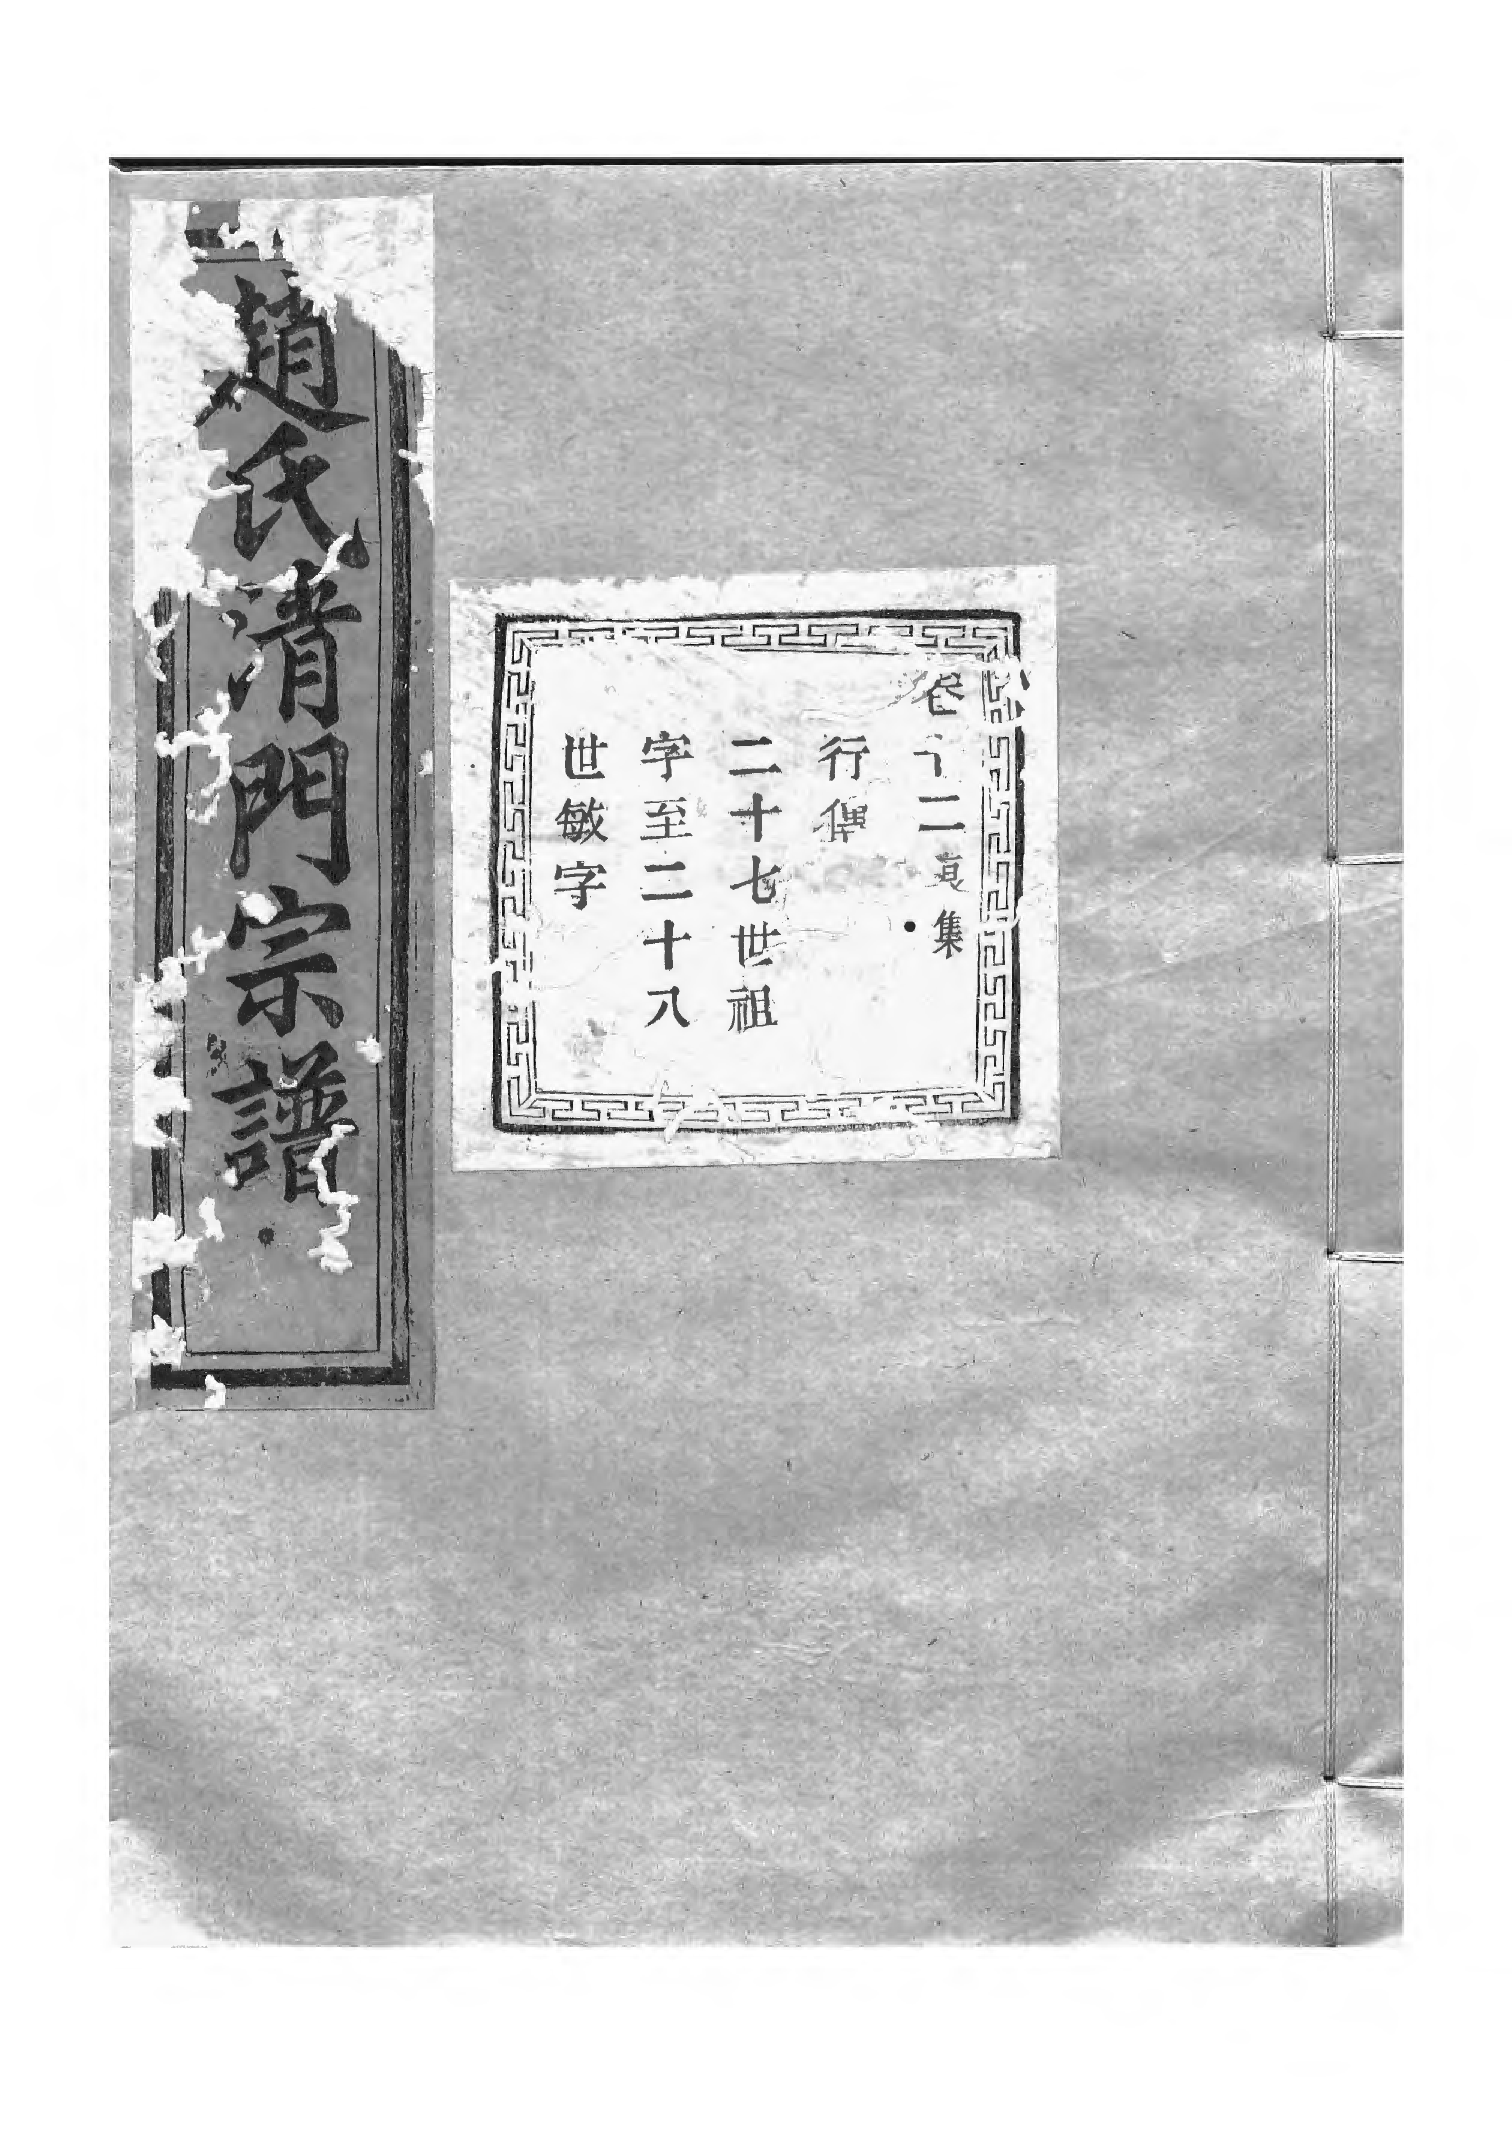 卷十二集
行傳
二十七世祖
字至二十八
世敏字
趙氏清門宗譜